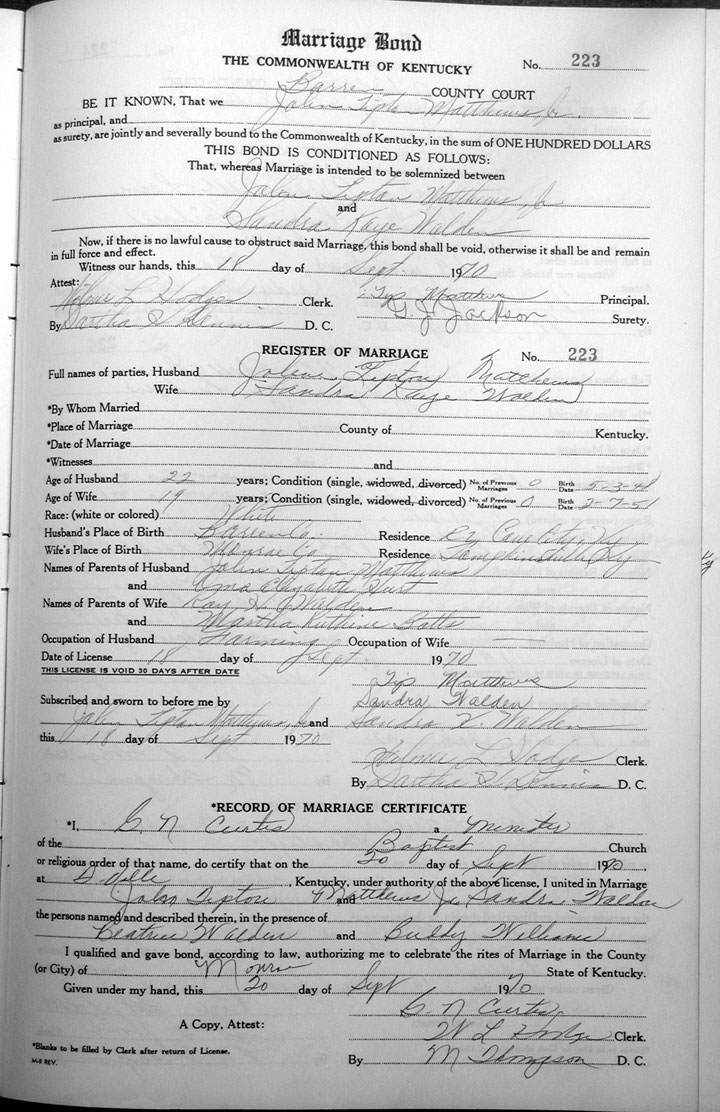 Marriage Bond
THE COMMONWEALTH OF KENTUCKY No. 223
Barren COUNTY COURT
BE IT KNOWN, That we John Tipton Matthews, Jr.
as principal, and
as surety, are jointly and severally bound to the Commonwealth of Kentucky, in the sum of ONE HUNDRED DOLLARS
THIS BOND IS CONDITIONED AS FOLLOWS:
That, whereas Marriage is intended to be solemnized between
John Tipton Matthews, Jr
and
Sandra Kaye Walden
Now, if there is no lawful cause to obstruct said Marriage, this bond shall be void, otherwise it shall be and remain
in full force and effect.
Witness our hands, this 18 day of Sept. 1970
Attest:
L Hodges Clerk. Tip Matthews Principal.
By D. C. G. J. Jackson Surety.
REGISTER OF MARRIAGE No. 223
Full names of parties, Husband Tipton Matthews
Wife Sandra Kaye Walden
*By Whom Married
*Place of Marriage County of Kentucky.
*Date of Marriage
*Witnesses and
Age of Husband 22 years; Condition (single, widowed, divorced) No. of Previous Marriages 0 Birth Date 5-3-48
Age of Wife 19 years; Condition (single, widowed, divorced) No. of Previous Marriages 0 Birth Date 2-7-51
Race: (white or colored) White
Husband's Place of Birth Barren Co. Residence Cave City, Ky
Wife's Place of Birth Monroe Co Residence Tompkinsville, Ky
Names of Parents of Husband John Tipton Matthews
and Elizabeth
Names of Parents of Wife Ray Walden
and Martha
Occupation of Husband Farming Occupation of Wife
Date of License 18 day of Sept. 1970
THIS LICENSE IS VOID 30 DAYS AFTER DATE
Tip Matthews
Subscribed and sworn to before me by Sandra Walden
John Tipton Matthews, Jr and Sandra K. Walden
this 18 day of Sept 1970
L Hodges Clerk.
By D. C.
*RECORD OF MARRIAGE CERTIFICATE
*I, G. N Curtis a Minister
of the Baptist Church
or religious order of that name, do certify that on the 20 day of Sept 1970,
at G Ville, Kentucky, under authority of the above license, I united in Marriage
John Tipton Matthews Jr and Sandra Walden
the persons named and described therein, in the presence of
Beatrice Walden and Buddy Williams
I qualified and gave bond, according to law, authorizing me to celebrate the rites of Marriage in the County
(or City) of Monroe State of Kentucky.
Given under my hand, this 20 day of Sept 1970
G. N Curtis
A Copy, Attest: W L Hodge Clerk.
*Blanks to be filled by Clerk after return of License.
By M Thompson D. C.
M-8 REV.